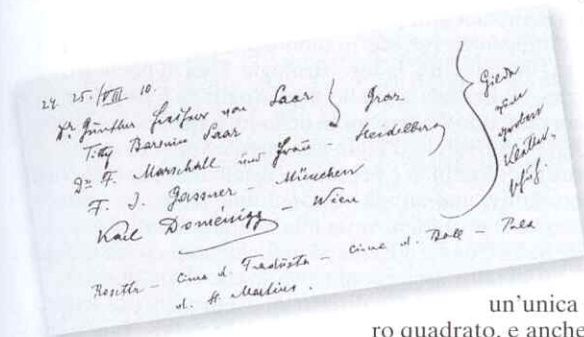 24. 25./VIII 10.
Dr. Günther Freiherr von Saar } Graz
Titty Baronin Saar
Dr. F. Marschall und Frau Heidelberg
F. J. Gassner – München
Karl Doménigg – Wien
Gilde
Kletter
Rosetta – Cima d. – Cima d. Ball – Pala
d. St. Martino.
un'unica
ro quadrato, e anche